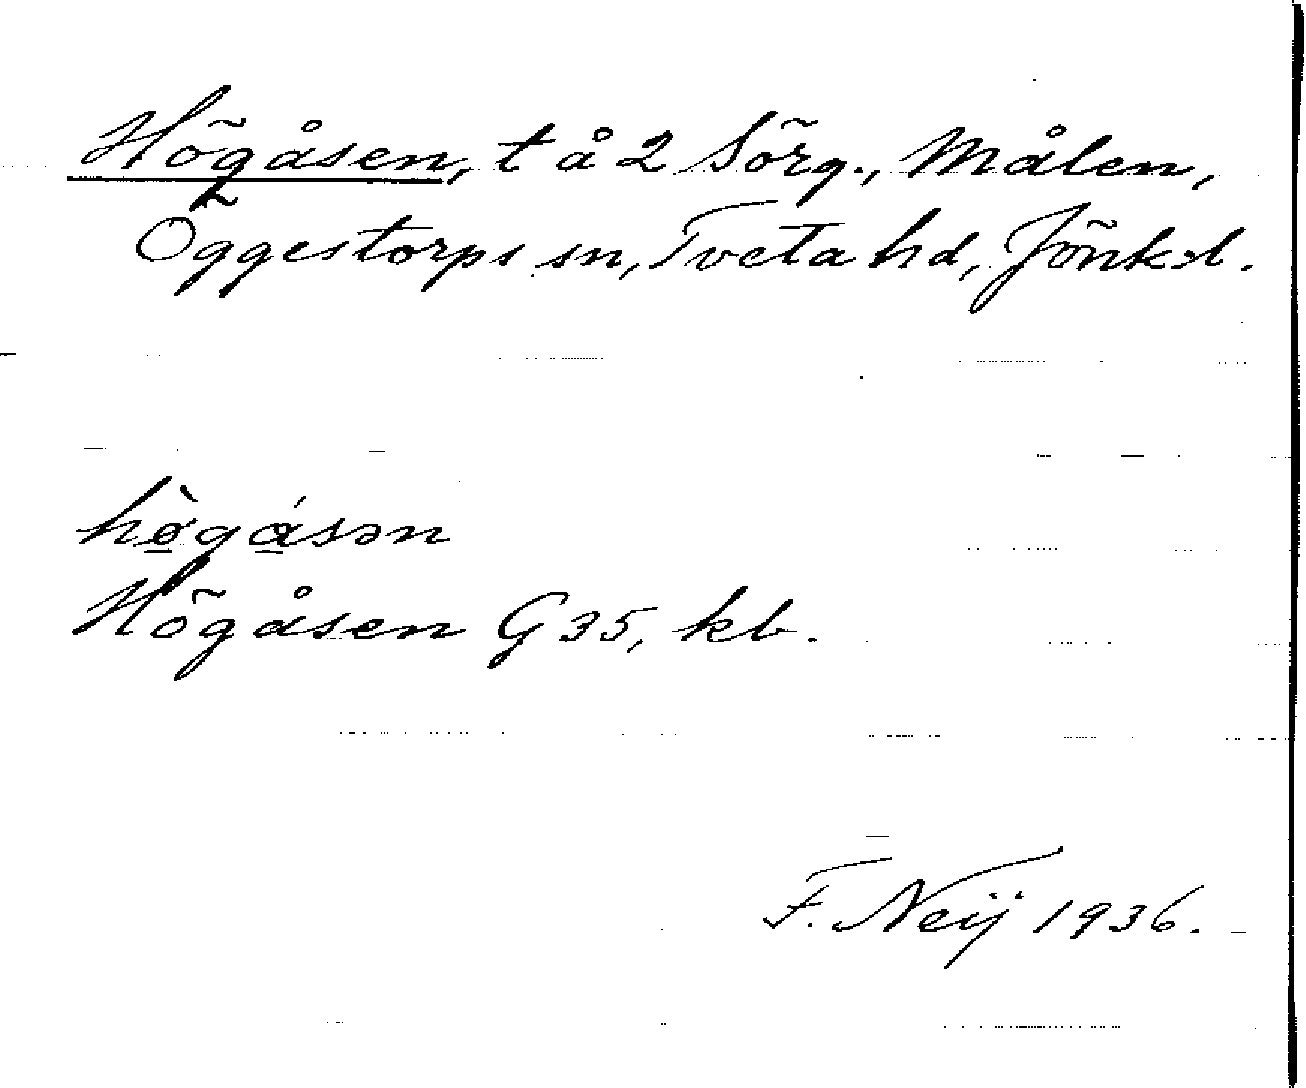 Högåsen, t å 2 Sörg., Målen,
Öggestorps sn, Tveta hd, Jönk.l.
hø̀gásən
Högåsen G 35, kb.
F. Neij 1936.